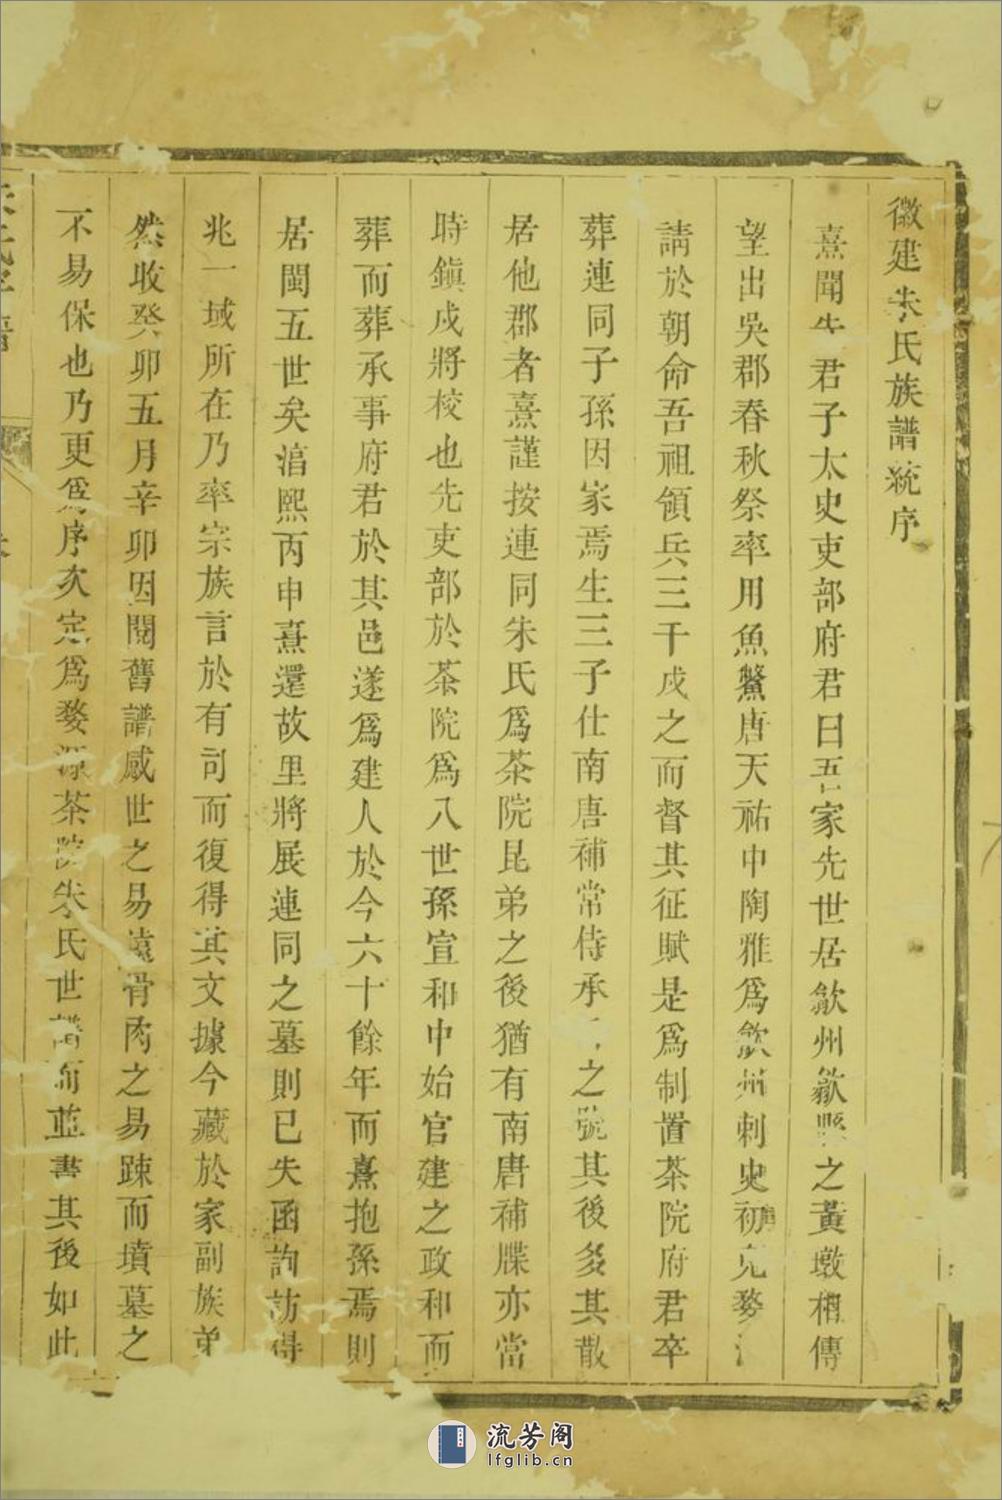 徽建朱氏族譜統序
熹聞先君子太史吏部府君曰吾家先世居歙州歙縣之黃墩相傳
望出吳郡春秋祭率用魚鱉唐天祐中陶雅爲歙州刺史初克婺
請於朝命吾祖領兵三千戍之而督其征賦是爲制置茶院府君卒
葬連同子孫因家焉生三子仕南唐補常侍承之號其後多其散
居他郡者熹謹按連同朱氏爲茶院昆弟之後猶有南唐補牒亦當
時鎭戍將校也先吏部於茶院爲八世孫宣和中始官建之政和而
葬而葬承事府君於其邑遂爲建人於今六十餘年而熹抱孫焉則
居閩五世矣淳熙丙申熹還故里將展連同之墓則已失函詢訪得
兆一域所在乃率宗族言於有司而復得其文據今藏於家副族弟
然收癸卯五月辛卯因閱舊譜感世之易遠骨肉之易踈而墳墓之
不易保也乃更爲序次定爲婺源茶院朱氏世譜而並書其後如此
流芳阁
lfglib.cn